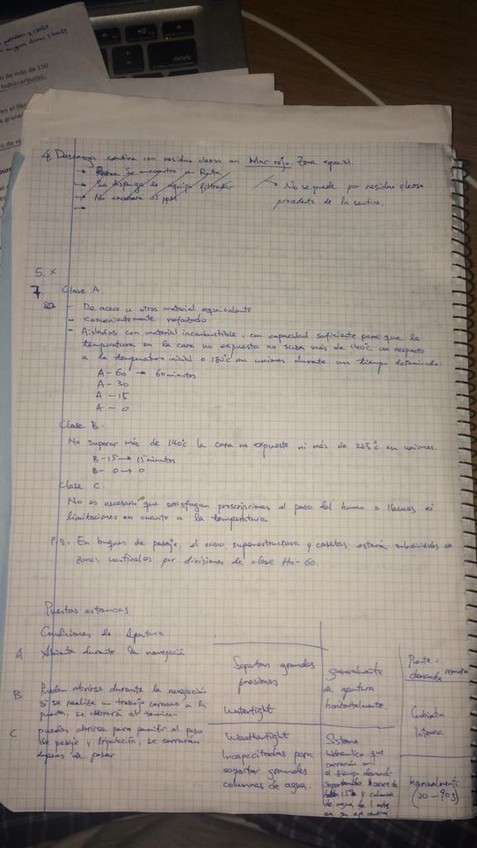 más de 150
hidrocarburos.
delete
4. Descarga sentina con residuo oleoso en Mar rojo, Zona especial.
→ Buque se encuentra en Ruta
→ Se disponga de equipo filtrador
→ No excederá 15 ppm
→
→ No se puede por residuo oleoso
procedente de la sentina.
5. x
7. Clase A.
- De acero u otros material equivalente
- convenientemente reforzado
- Aislados con material incombustible, con capacidad suficiente para que la
temperatura en la cara no expuesta no suba más de 140°c con respecto
a la temperatura inicial o 180°c en uniones durante un tiempo determinado:
A-60 → 60 minutos
A-30
A-15
A-0
Clase B.
No superar más de 140°c la cara no expuesta ni más de 225°c en uniones.
B-15 → 15 minutos
B-0 → 0
Clase C.
No es necesario que satisfagan prescripciones al paso del humo o llamas ni
limitaciones en cuanto a la temperatura
En buques de pasaje, el casco superestructura y casetas estarán subdivididos en
zonas verticales por divisiones de clase
Puertas estancas
Condiciones de Apertura
A Abierta durante la navegación
B Pueden abrirse durante la navegación
si se realiza un trabajo cercano a la
puerta, se cerrará al terminar
C pueden abrirse para permitir el paso
de pasaje y tripulación, se cerrarán
después de pasar
Soportan grandes
presiones
Watertight
Weathertight
Incapacitadas para
soportar grandes
columnas de agua.
generalmente
de apertura
horizontalmente
Sistema
hidraulico que
cerrarán en
el tiempo
Puente:
remota
Cubierta
Interna
Manualmente
(20-90s)